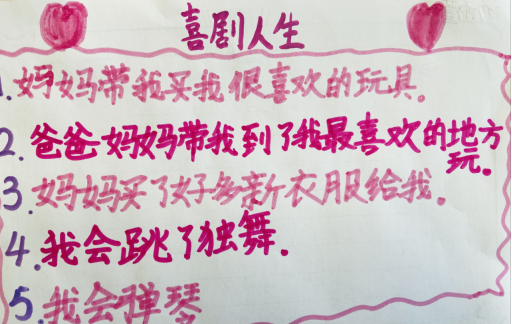 喜剧人生
1.妈妈带我买我很喜欢的玩具。
2.爸爸妈妈带我到了我最喜欢的地方
玩。
3.妈妈买了好多新衣服给我。
4.我会跳了独舞.
5.我会弹琴